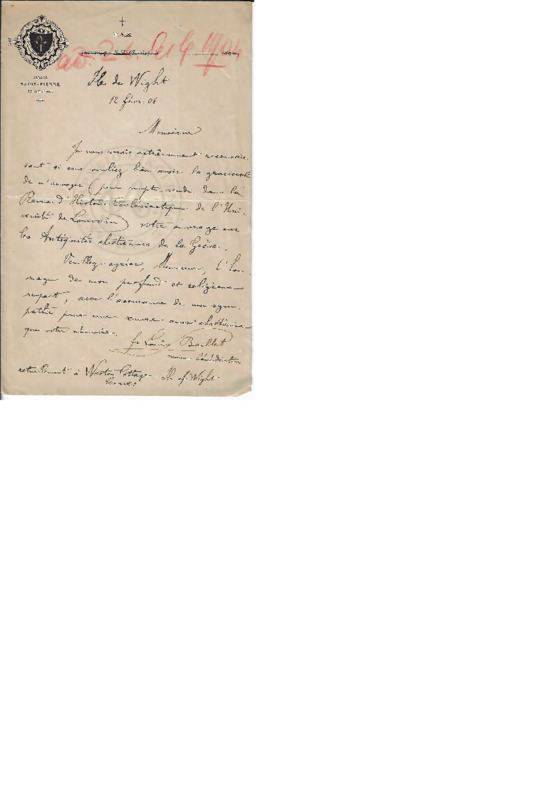 PAX
ABBAYE
SAINT-PIERRE
Ile de Wight
12 févr. 06
Monsieur
Je vous serais extrêmement reconnais-
sant si vous vouliez bien avoir la gracieuseté
de m'envoyer (pour compte-rendu dans la
Revue d'Histoire Ecclésiastique de l'Uni-
versité de Louvain) votre ouvrage sur
les Antiquités chrétiennes de la Grèce.
Veuillez agréer, Monsieur, l'hom-
mage de mon profond et religieux
respect, avec l'assurance de ma sym-
pathie pour une œuvre aussi
que votre
fr Louis Baillet
moine bénédictin
actuellement à Cottage Ile of Wight
Cowes